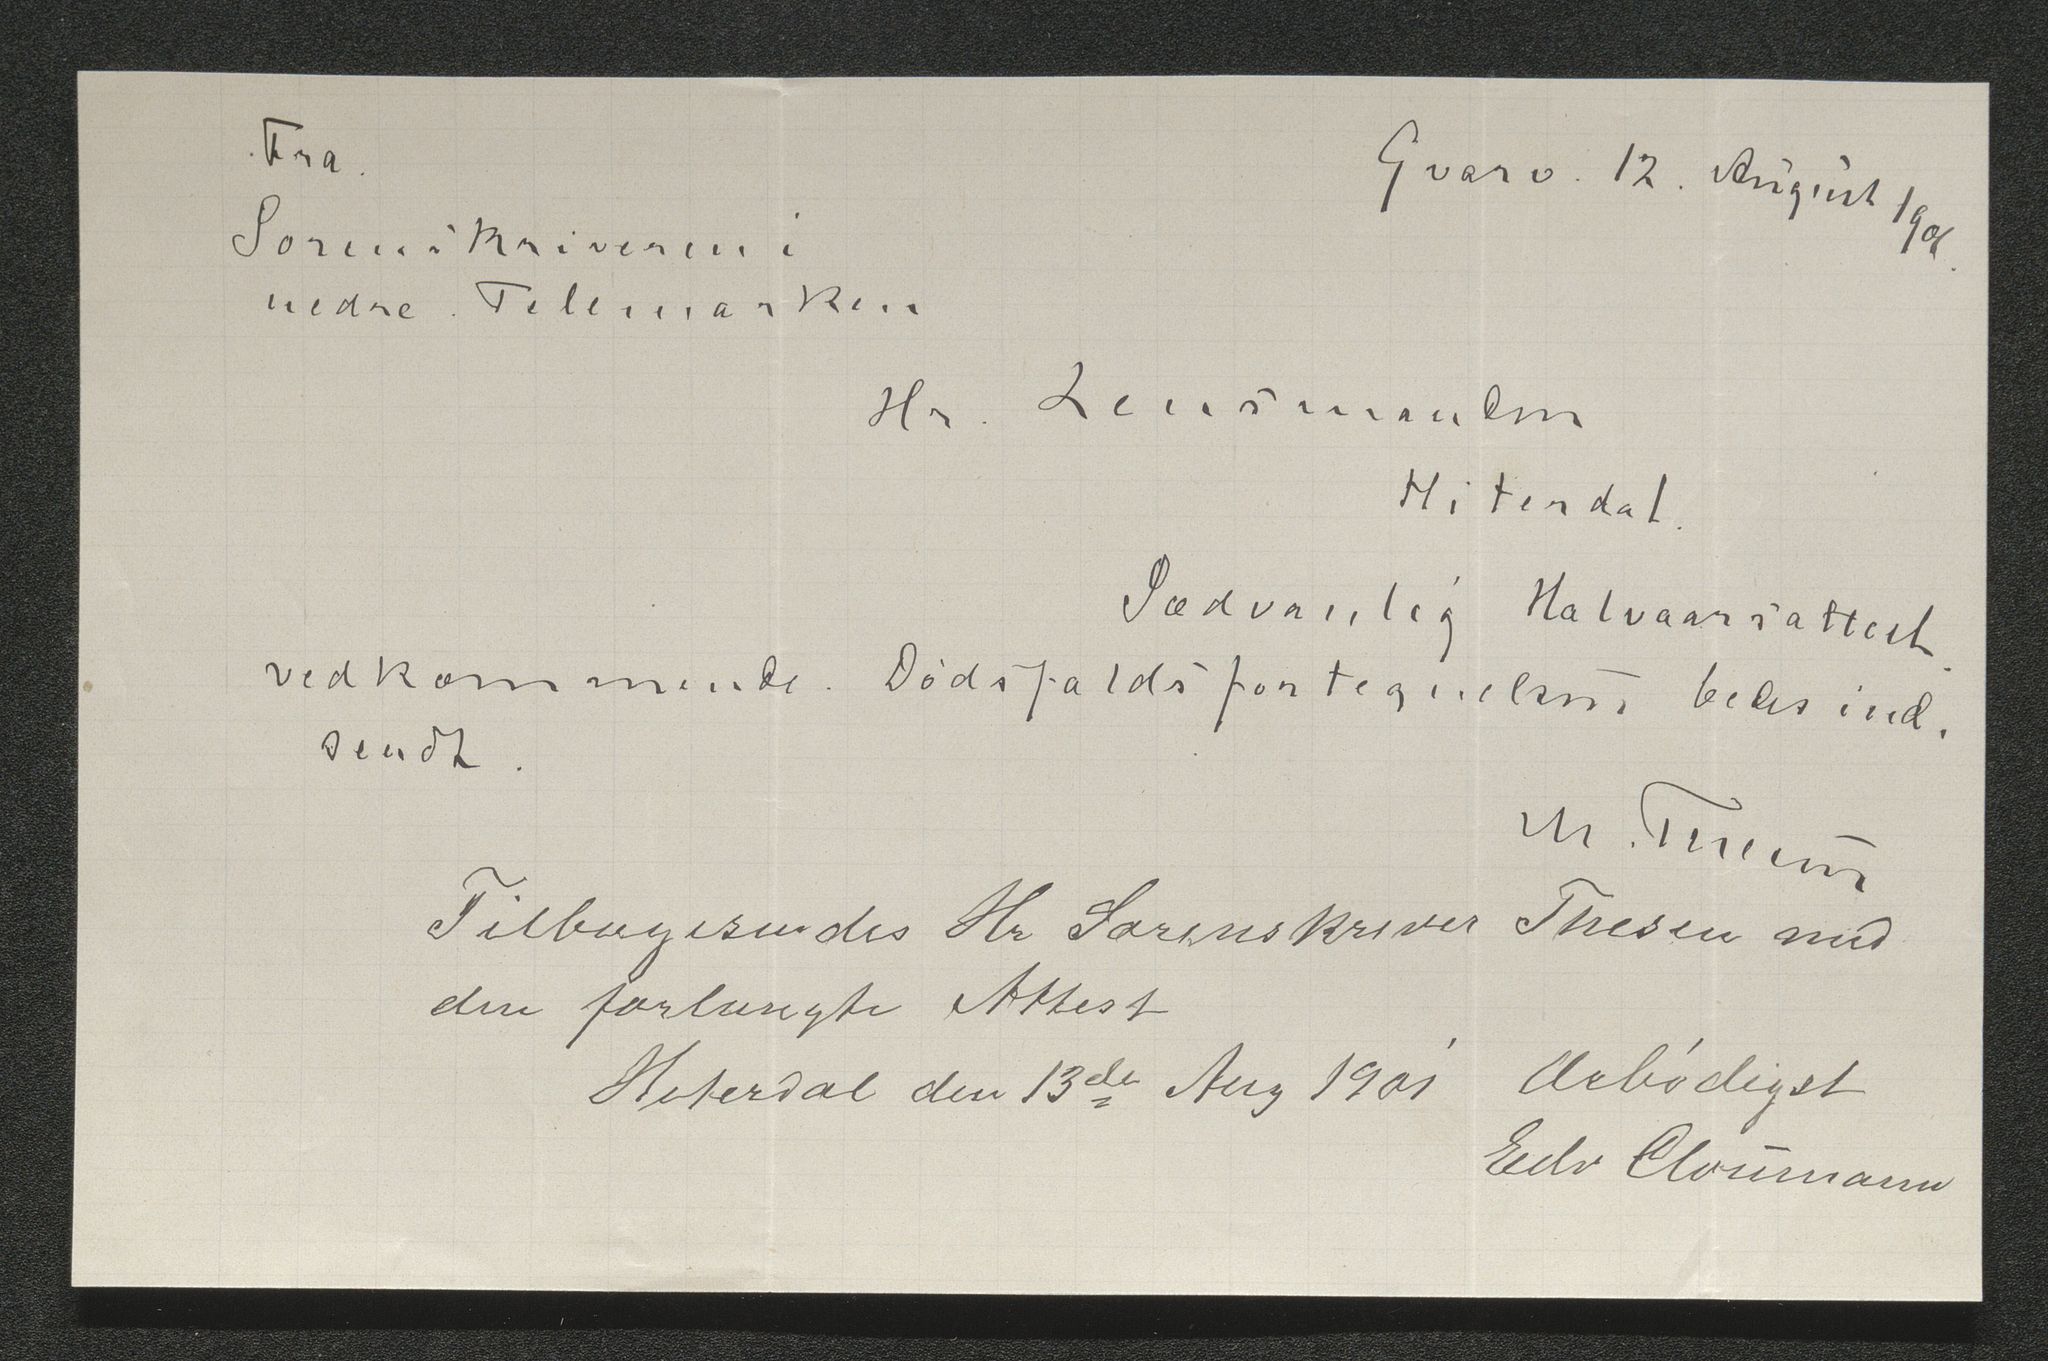 Fra.
Gvarv. 12. August 1901.
Sorenskriveren i
nedre Telemarken
Hr. Lensmanden
Hiterdal.
Sædvanlig Halvaarsattest
vedkommende Dødsfaldsfortegnelsen bedes ind-
sendt.
M. Thesen
Tilbagesendes Hr Sorenskriver Thesen med
den forlangte Attest
Hiterdal den 13de Aug 1901 Ærbødigst
Edv Cloumann